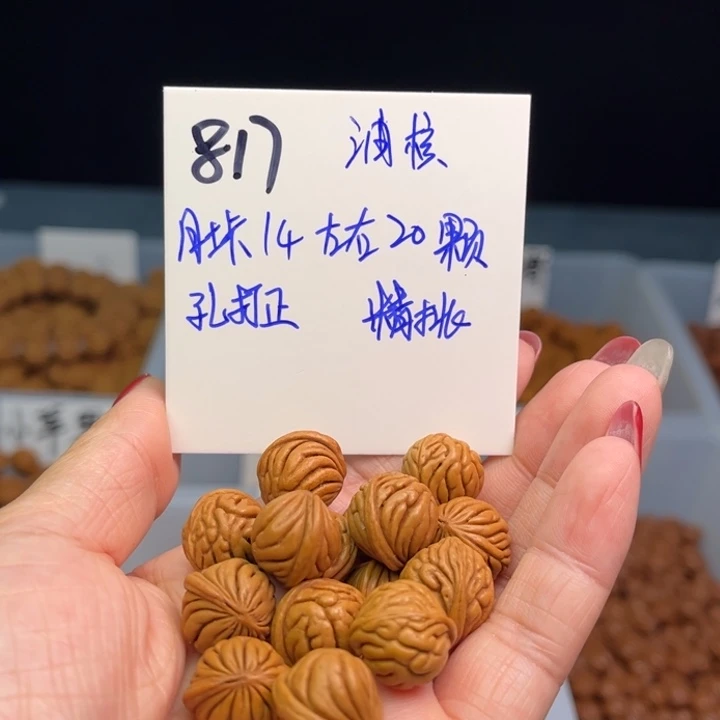 817 油核
肚卡14左右20颗
孔打正 横批